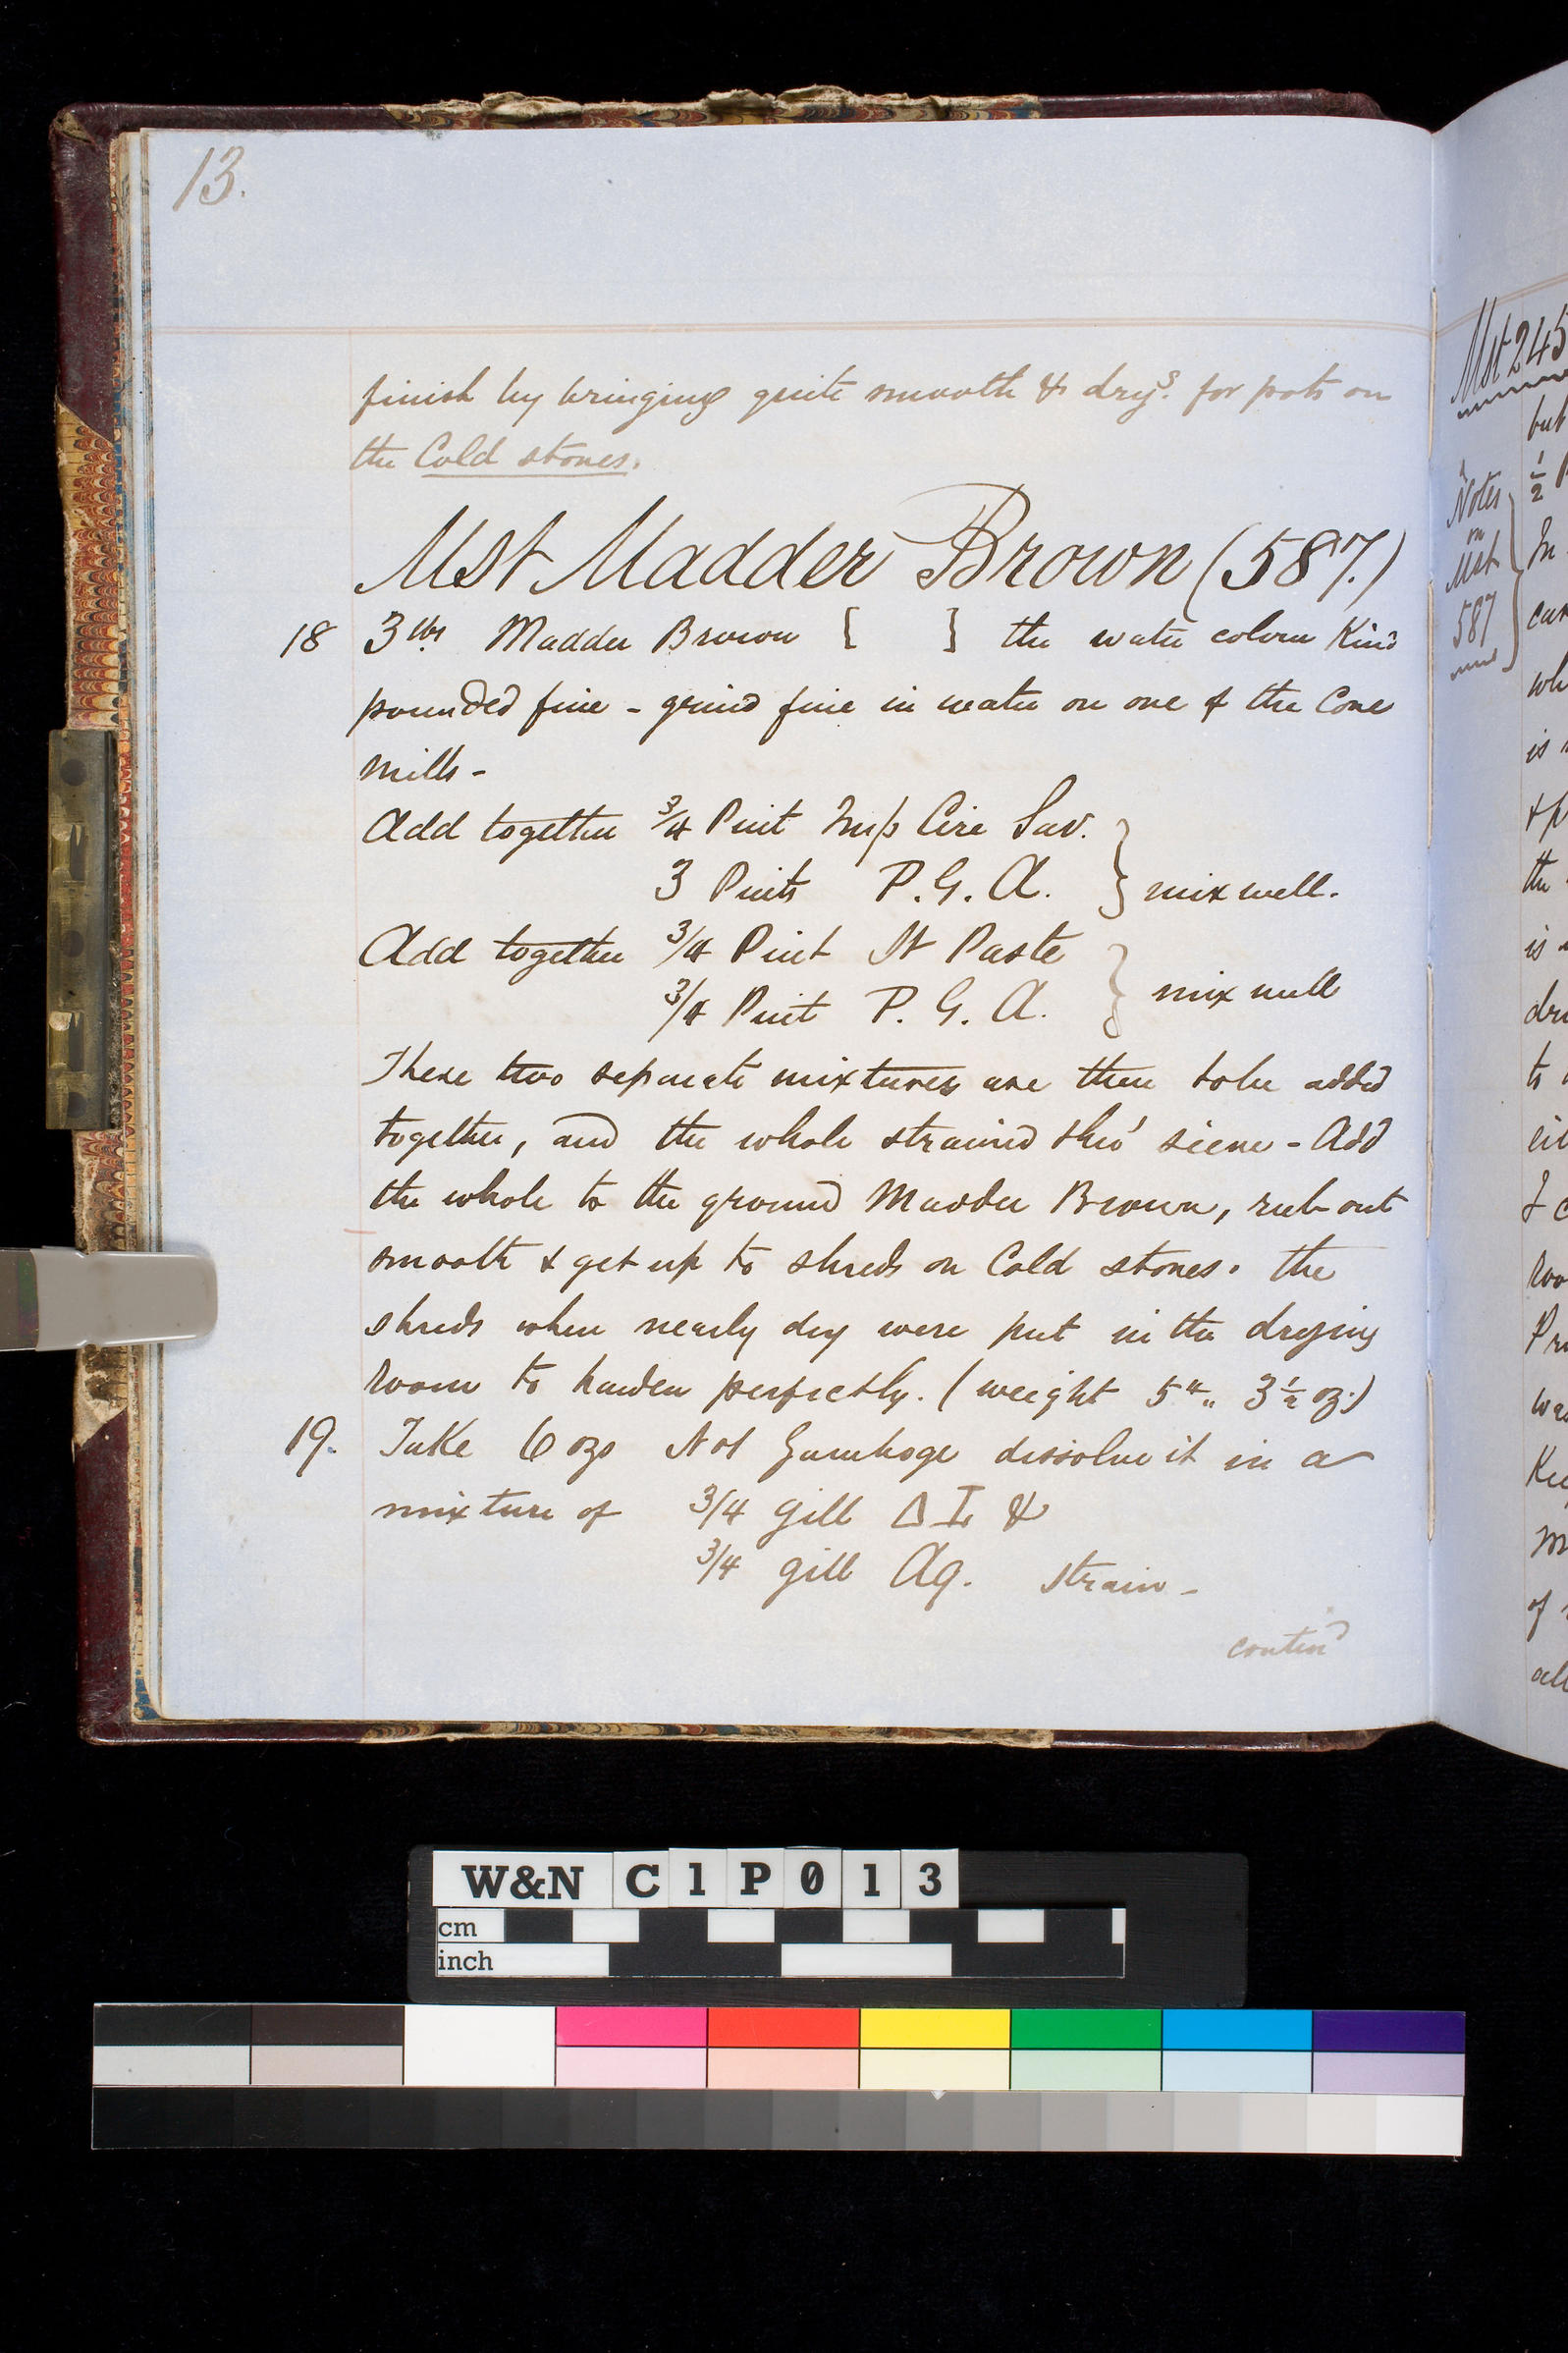 13.
finish by bringing quite smooth & dryg. for pots on
the Cold stones.
Mst Madder Brown (587.)
18 3 lbs Madder Brown [ ] the water colour Kind
pounded fine - grind fine in water on one of the Cone
mills -
Add together 3/4 Pint Imp Cire Sav.
3 Pints P. G. A. } mix well.
Add together 3/4 Pint St Paste
3/4 Pint P. G. A. } mix well
These two separate mixtures are then to be added
together, and the whole strained thro' sieve - Add
the whole to the ground Madder Brown, rub out
smooth & get up to shreds on Cold stones. The
shreds when nearly dry were put in the drying
room to harden perfectly. (weight 5 lb,, 3 1/2 oz.)
19. Take 6 ozs Gamboge dissolve it in a
mixture of 3/4 gill Δ I &
3/4 gill Aq. strain -
contind
Mst 245
Notes
on
Mst
587
but
1/2
In
is
the
is
to
of
W&N C1P013
cm
inch